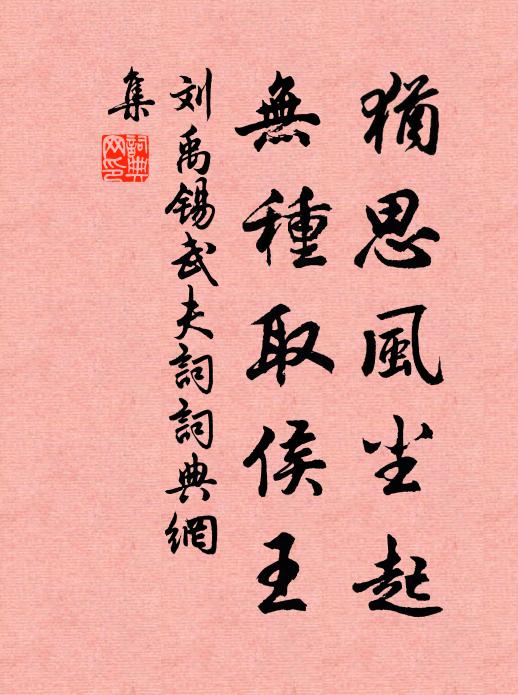 猶思風尘起
無種取侯王
刘禹锡武夫詞詞典網
集
詞典
网印